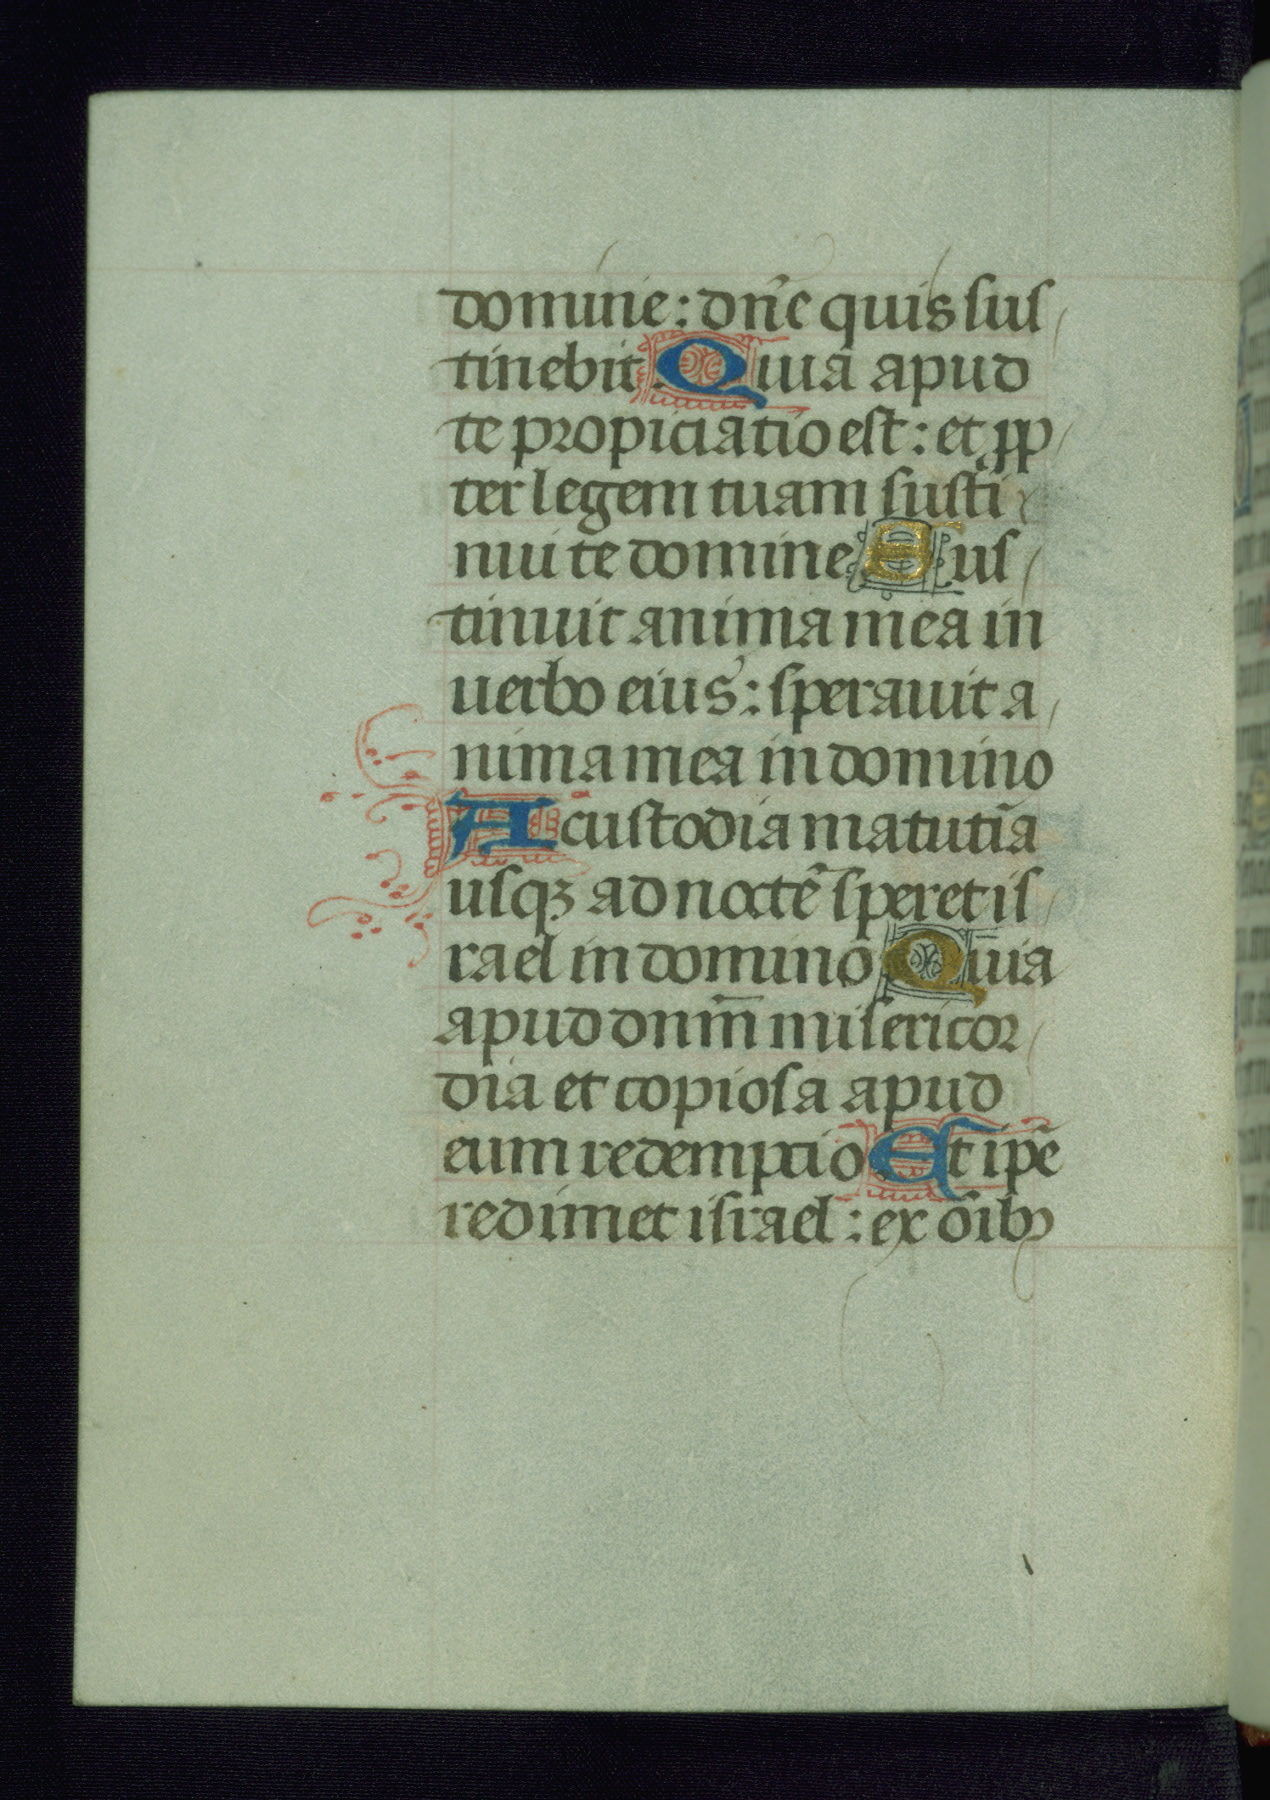 domine: dñe quis sus
tinebit Quia apud
te propiciatio est: et ꝓp
ter legem tuam susti
nui te domine Sus
tinuit anima mea in
uerbo eius: sperauit a
nima mea in domino
A custodia matutīa
usqꝫ ad noctē speret is
rael in domino Quia
apud dnm̄ misericor
dia et copiosa apud
eum redemptio Et ip̄e
redimet israel: ex oībꝫ